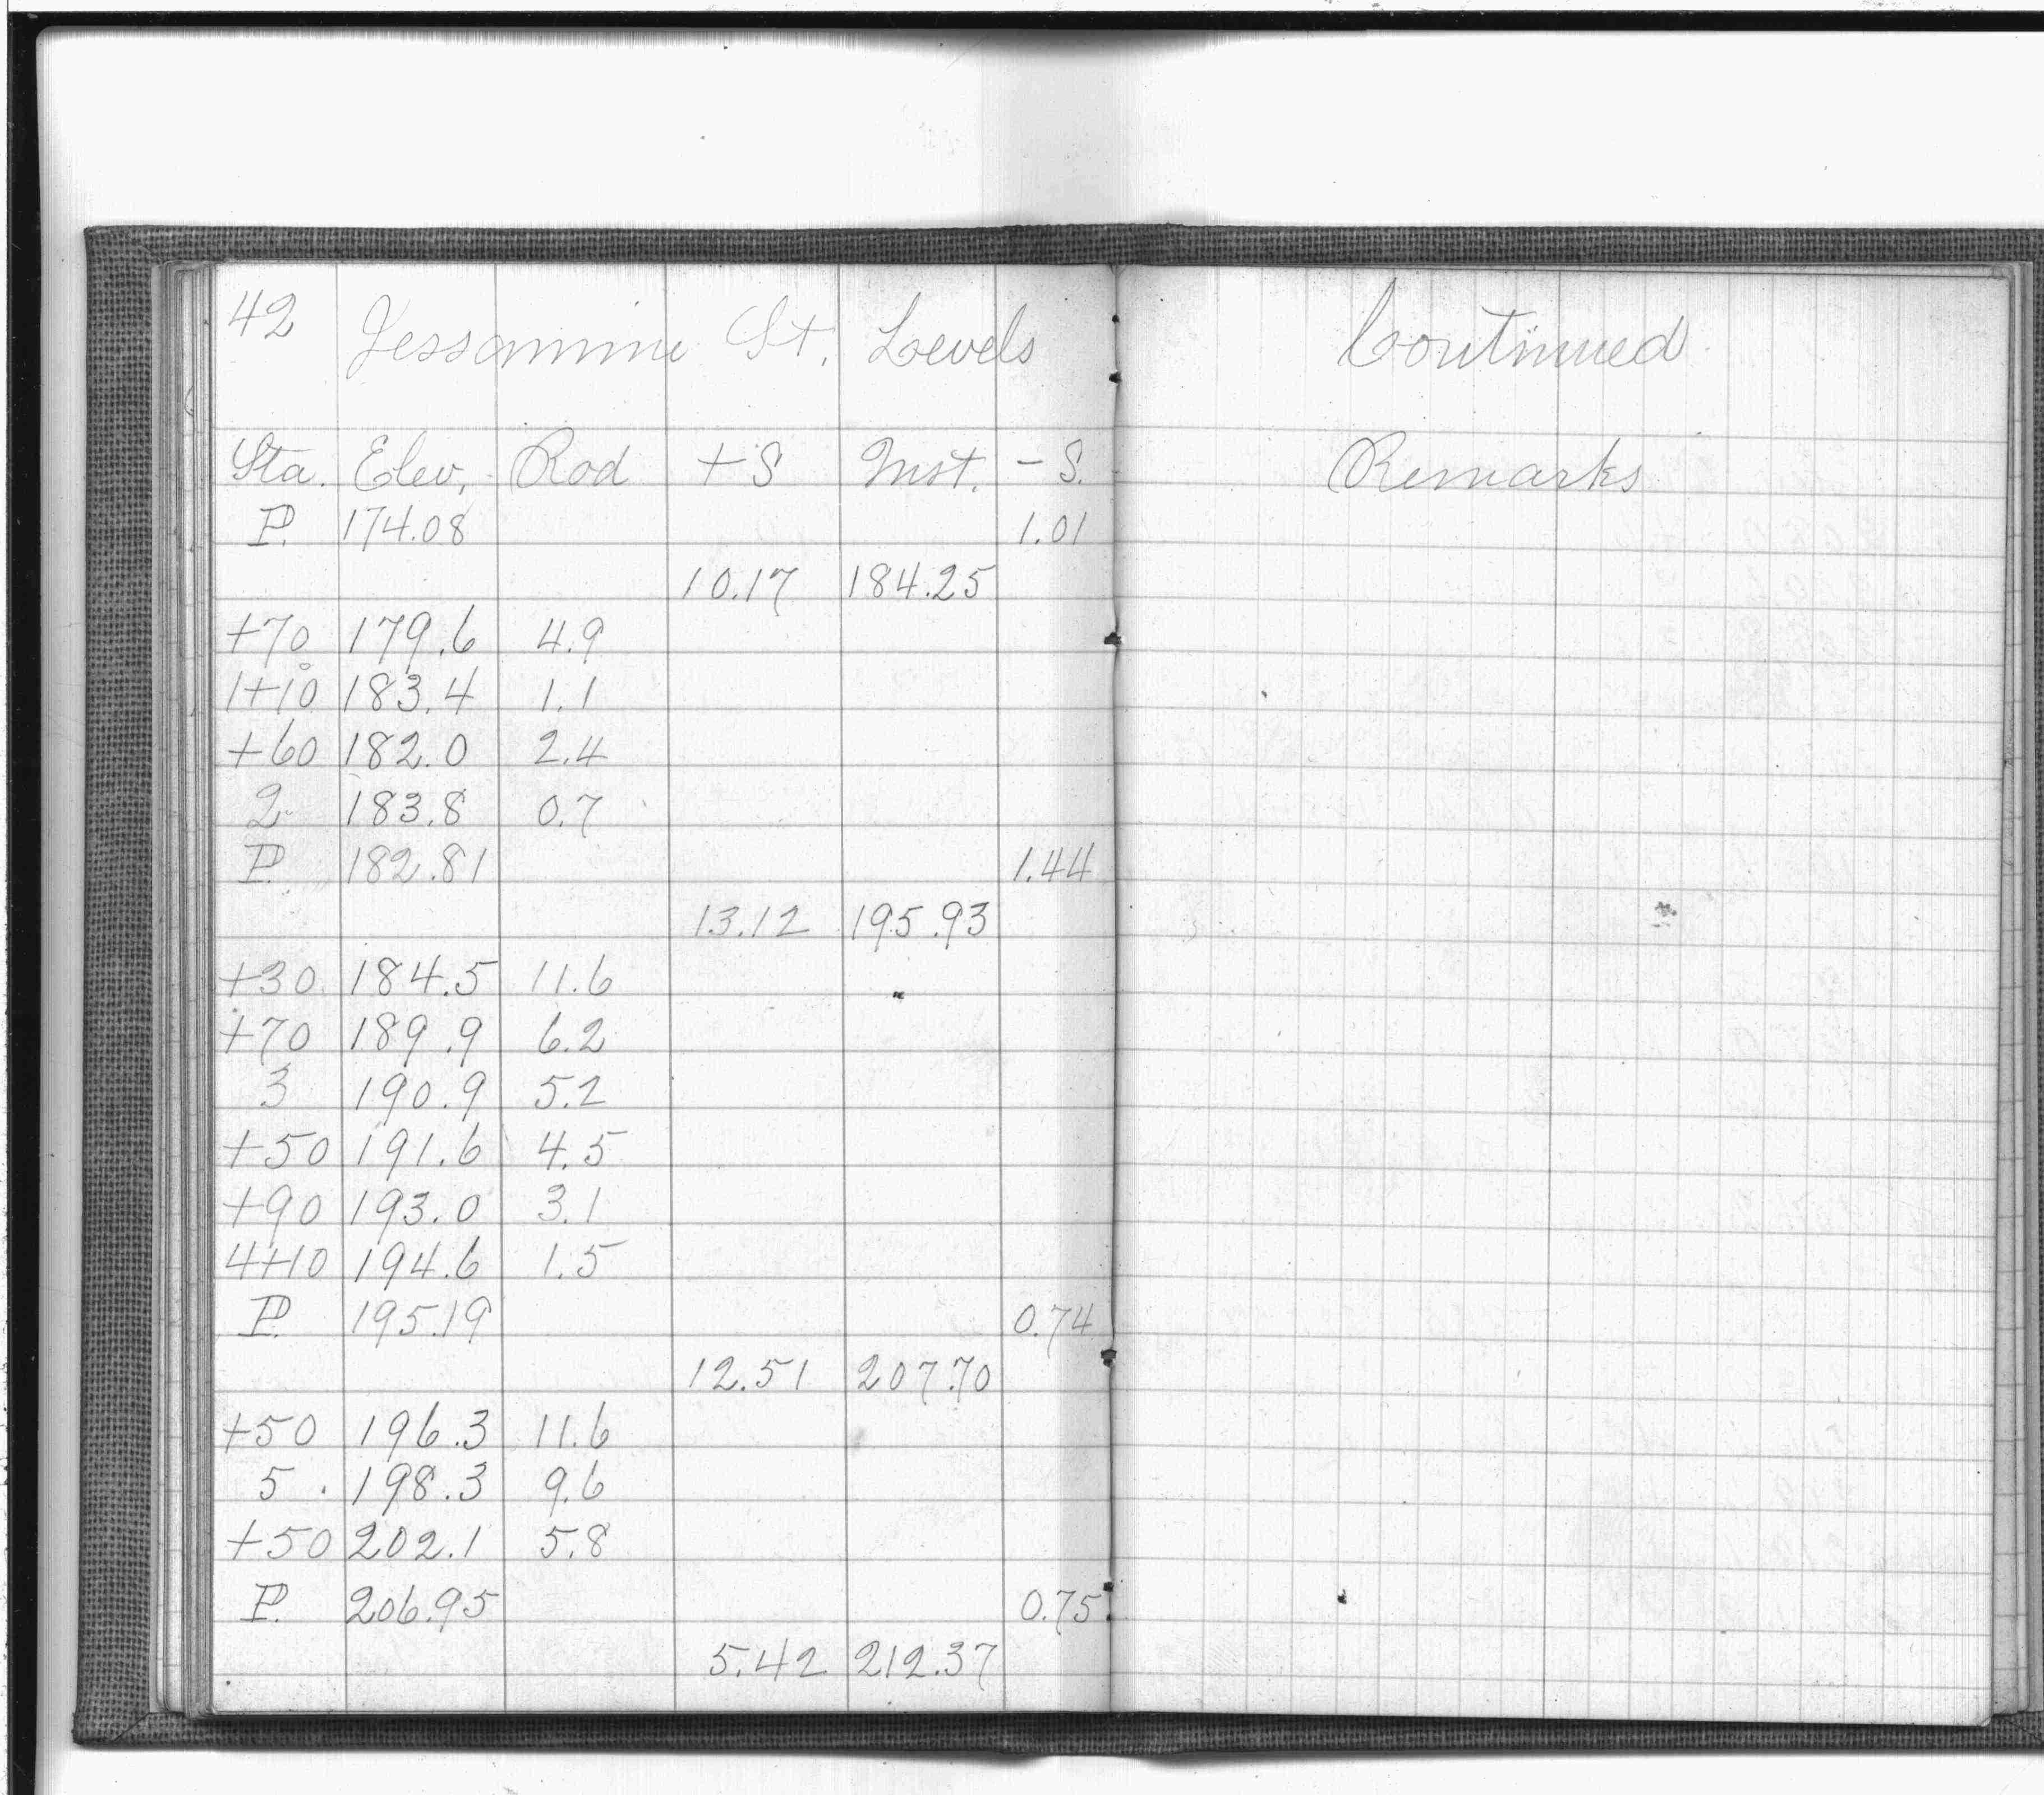 42 Jessamine St. Levels Continued
Sta. Elev. Rod +S Inst. -S. Remarks
P. 174.08 1.01
10.17 184.25
+70 179.6 4.9
1+10 183.4 1.1
+60 182.0 2.4
2 183.8 0.7
P. 182.81 1.44
13.12 195.93
+30 184.5 11.6
+70 189.9 6.2
3 190.9 5.2
+50 191.6 4.5
+90 193.0 3.1
4+10 194.6 1.5
P. 195.19 0.74
12.51 207.70
+50 196.3 11.6
5 198.3 9.6
+50 202.1 5.8
P. 206.95 0.75
5.42 212.37